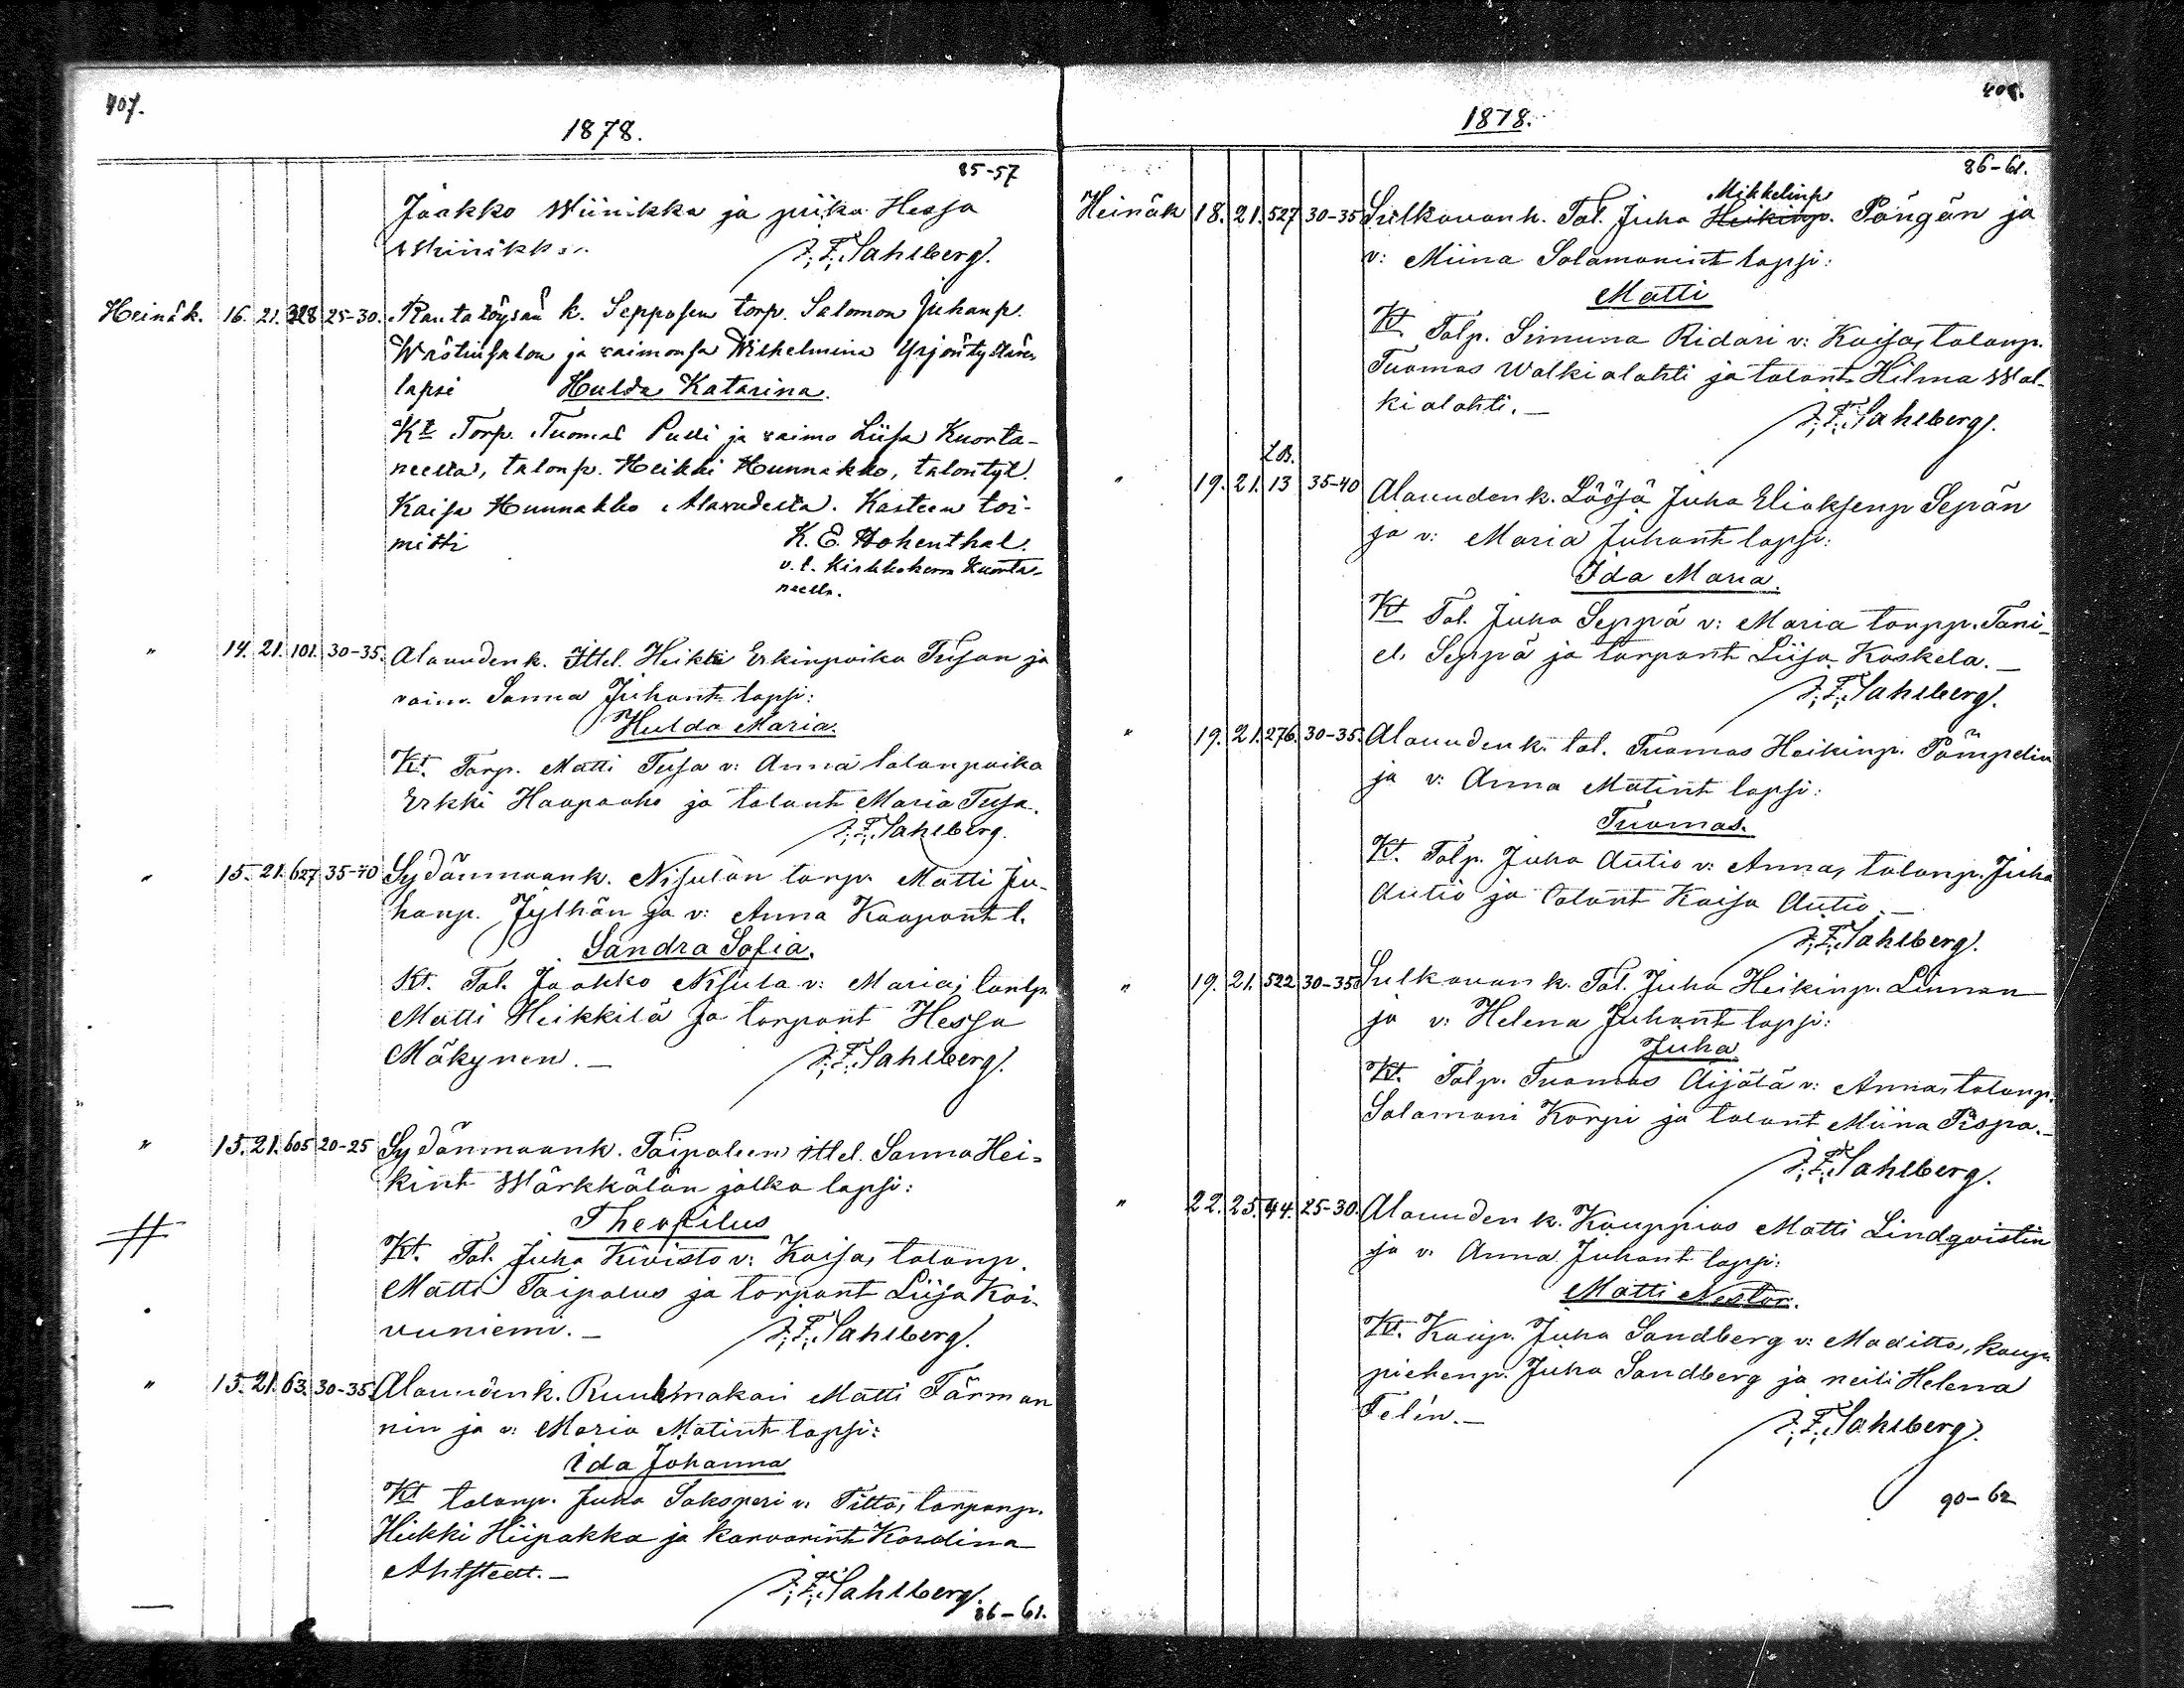 407.
1878.
85-57
Jaakko Wiinikka ja piika Hessa
Wiinikka. F. F. Sahlberg.
Heinäk. 16. 21. 328 25-30. Rantatöysän k. Sepposen torp. Salomon Juhanp.
Wrötinsalon ja waimonsa Wilhelmina Yrjöntyttären
lapsi Hulda Katarina.
Kt Torp. Tuomas Pulli ja waimo Liisa Kuorta-
neelta, talonp. Heikki Hunnakko, talontyt.
Kaisa Hunnakko Alavudelta. Kasteen toi-
mitti K. E. Hohenthal.
v. t. Kirkkoherra Kuorta-
neella.
" 14. 21. 101. 30-35. Alauuden k. Ittel. Heikki Erkinpoika Tusan ja
vaim. Sanna Juhant. lapsi:
Hulda Maria.
Kt. Torp. Matti Tusa v: Anna talonpoika
Erkki Haapaaho ja talont Maria Tusa.
F. F. Sahlberg.
" 15. 21. 627 35-40 Sydänmaank. Nisulan torp. Matti Ju-
hanp. Jylhän ja v: Anna Kaapont l.
Sandra Sofia.
Kt. Tal. Jaakko Nisula v: Maria, tontp.
Matti Heikkilä ja torpant Hessa
Mäkynen. F. F. Sahlberg.
" 15. 21. 605 20-25 Sydänmaank. Taipaleen ittel. Sanna Hei-
kint Wärkkälän jalka lapsi:
Theofilus
Kt. Tal. Juha Kivisto v: Kaisa, talonp.
Matti Taipalus ja torpant Liisa Koi-
vuniemi. F. F. Sahlberg.
" 15. 21. 63. 30-35. Alauuden k. Ruukinmakari Matti Färman
nin ja v: Maria Matint lapsi:
Ida Johanna
Kt talonp. Juha Saksperi v: Titta, torpanp.
Heikki Hiipakka ja karvarint Karolina
Ahlstedt. F. F. Sahlberg.
86-61.
408.
1878.
86-61.
Mikkelinp
Heinäk 18. 21. 527 30-35 Sulkavank. Tal. Juha Heikinp. Pängän ja
v: Miina Salamonint lapsi:
Matti
Kt Talp. Simuna Ridari v: Kaisa, talonp.
Tuomas Walkialahti ja talont Hilma Wal-
kialahti. F. F. Sahlberg.
LB.
" 19. 21. 13 35-40 Alauuden k. Lääjä Juha Eliaksenp Sepän
ja v: Maria Juhant lapsi:
Ida Maria.
Kt Tal. Juha Seppä v: Maria torpp. Tani-
el. Seppä ja torpant Liisa Koskela.
F. F. Sahlberg.
" 19. 21. 276. 30-35. Alauuden k. tal. Tuomas Heikinp. Pämpelin
ja v: Anna Matint lapsi:
Tuomas.
Kt. Talp. Juha Autio v: Anna, talonp. Juha
Autio ja talont Kaisa Autio.
F. F. Sahlberg.
" 19. 21. 522 30-35 Sulkavan k. Tal. Juha Heikinp. Linnan
ja v: Helena Juhant lapsi:
Juha
Kt. Talp. Tuomas Äijälä v: Anna, talonp.
Salamoni Korpi ja talont Miina Pispa.
F. F. Sahlberg.
" 22. 25. 44. 25-30. Alauuden k. Kauppias Matti Lindqvistin
ja v: Anna Juhant lapsi:
Matti Nestor.
Kt. Kaup. Juha Sandberg v: Maditta, kaup-
piehenp. Juha Sandberg ja neiti Helena
Telin. F. F. Sahlberg.
90-62